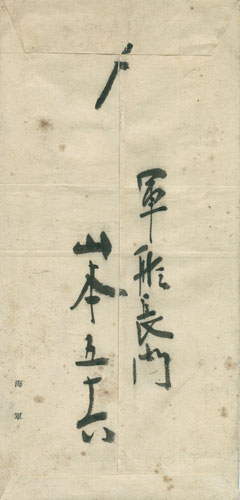 〆
軍艦長門
山本五十六
海軍